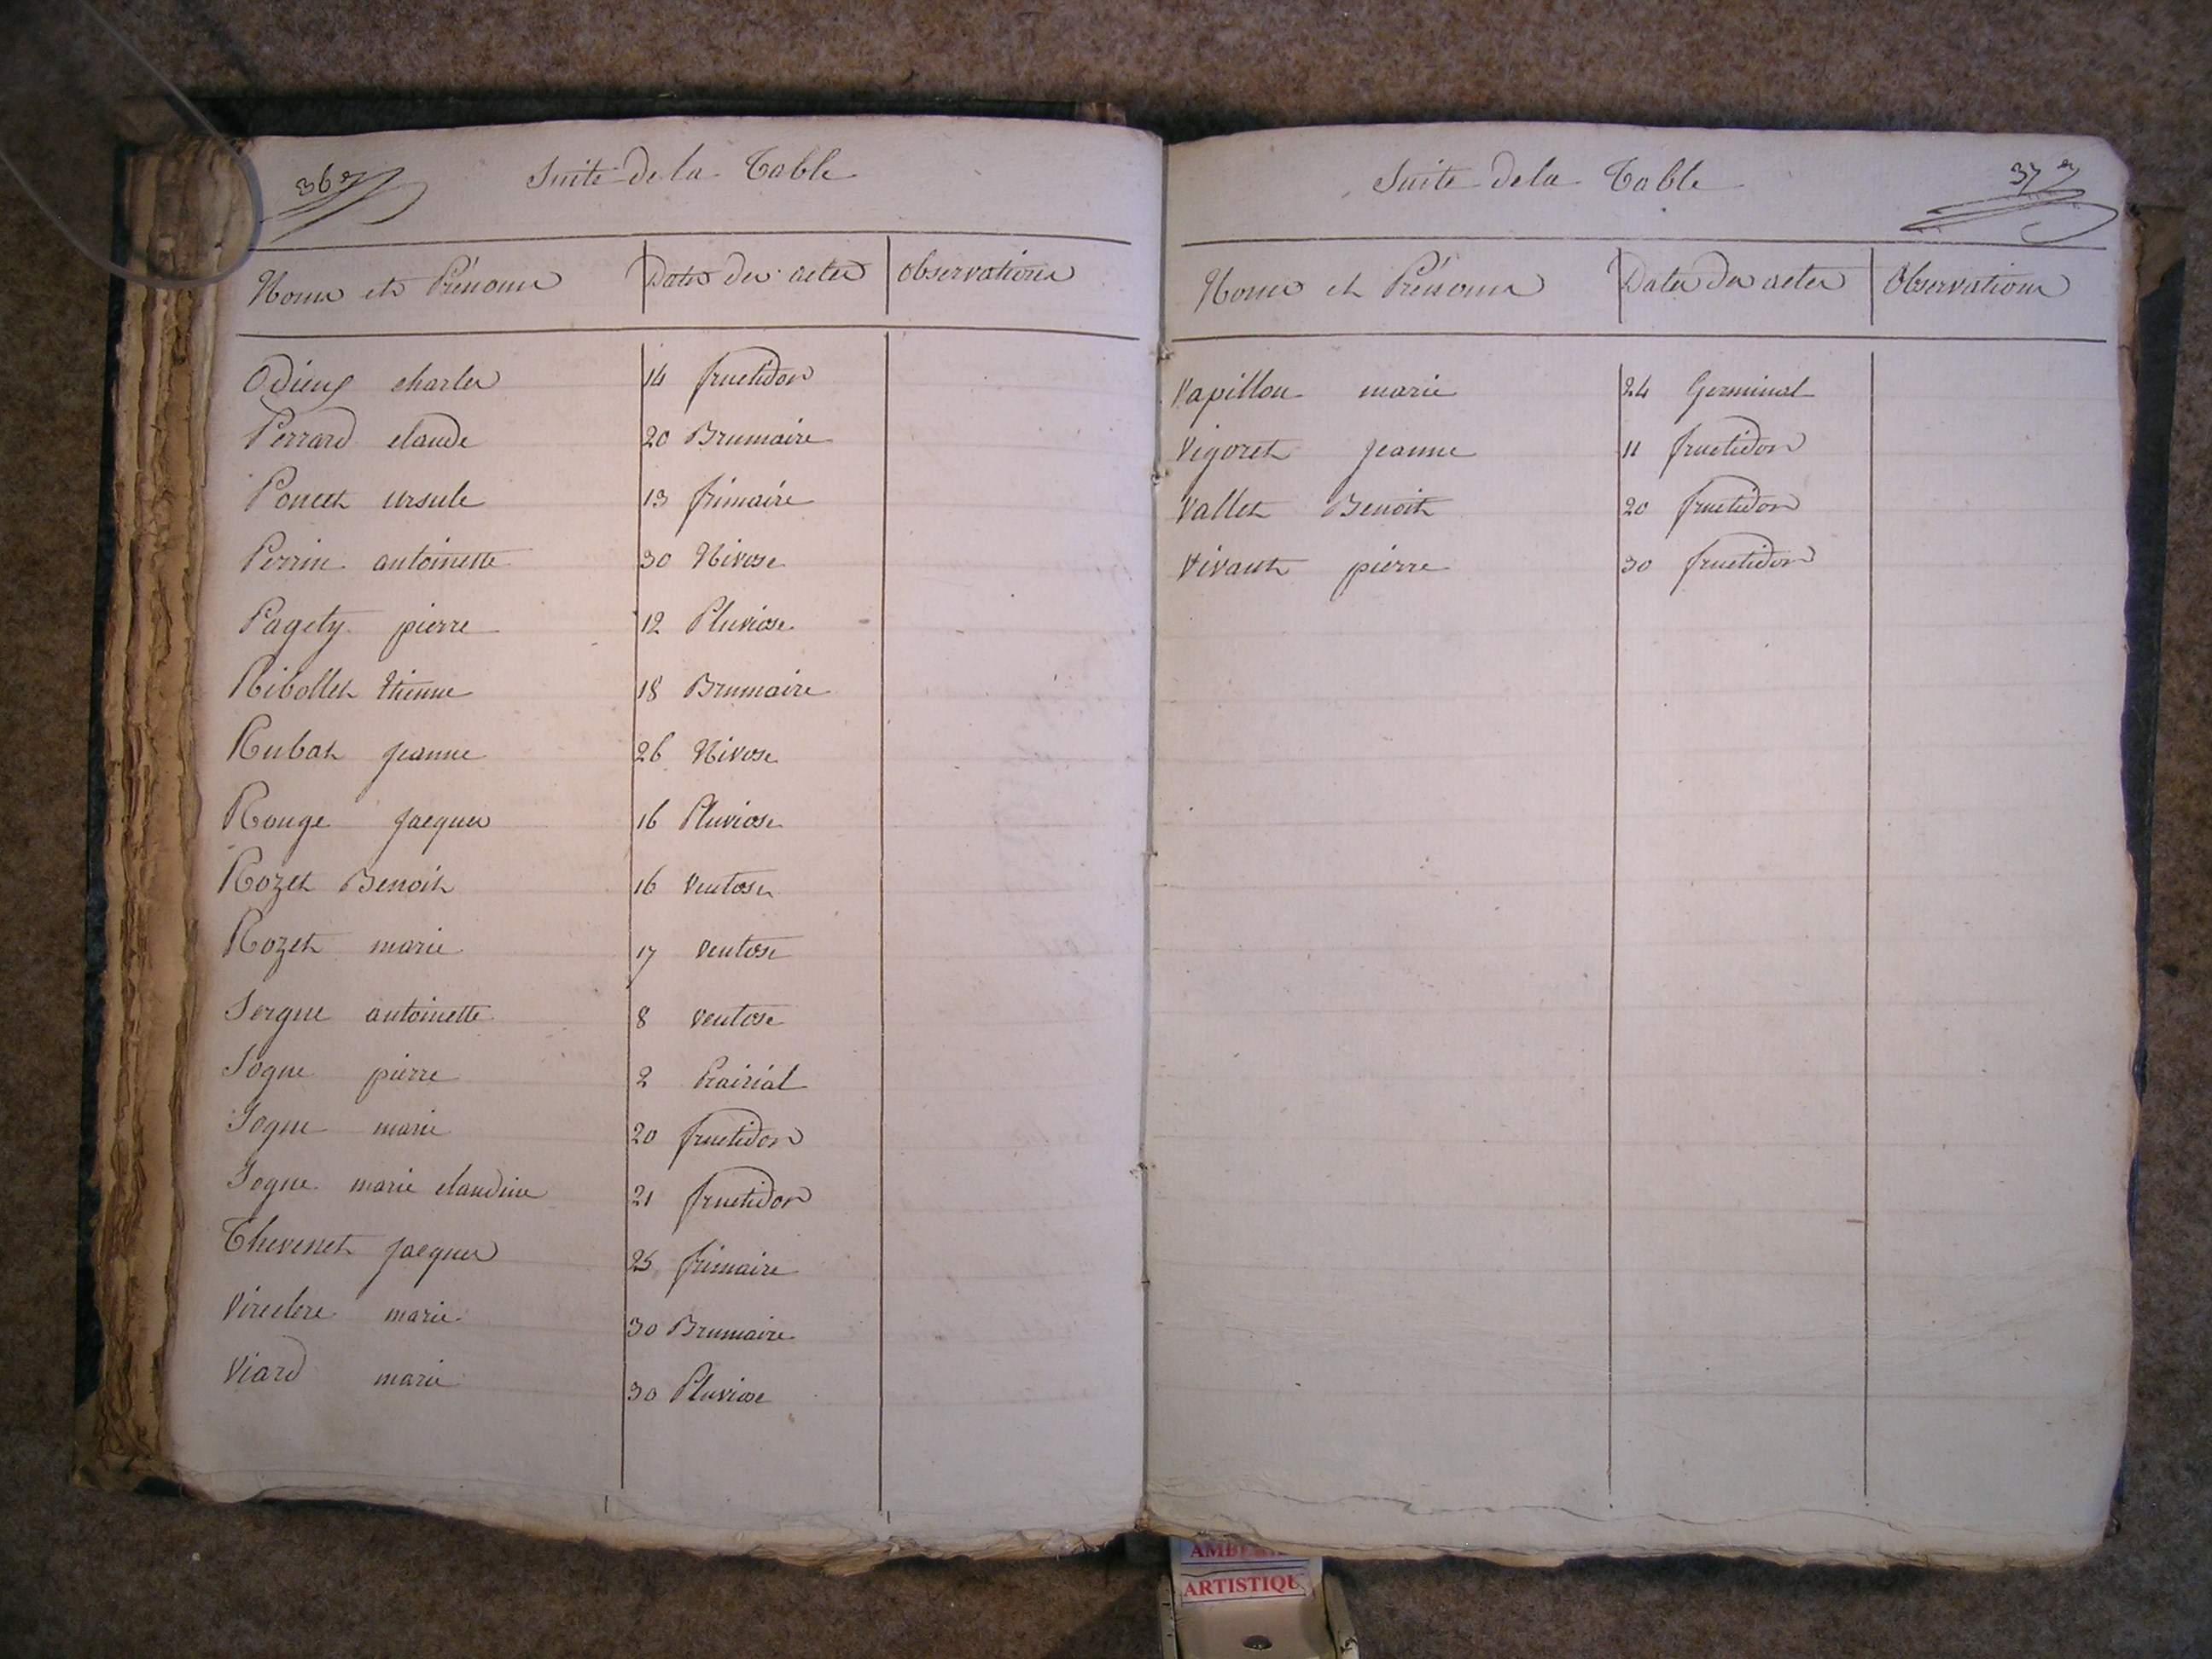 36e
Suite de la Table
Noms et Prénoms Dates des actes observations
Odieux charles 14 fructidor
Perrard claude 20 Brumaire
Poncet ursule 13 frimaire
Perrin antoinette 30 Nivose
Pagety pierre 12 Pluviose
Ribollet Etienne 18 Brumaire
Rubat jeanne 26 Nivose
Rouge jacques 16 Pluviose
Rozet Benoit 16 Ventose
Rozet marie 17 Ventose
Sergne antoinette 8 Ventose
Sogne pierre 2 Prairial
Sogne marie 20 fructidor
Sogne marie claudine 21 fructidor
Thevenet jacques 25 frimaire
Vireclere marie 30 Brumaire
Viard marie 30 Pluviose
Suite de la Table
37e
Noms et Prénoms Dates des actes Observations
Vapillon marie 24 Germinal
Vigoret jeanne 11 fructidor
Vallet Benoit 20 fructidor
Vivant pierre 30 fructidor
ARTISTIQU